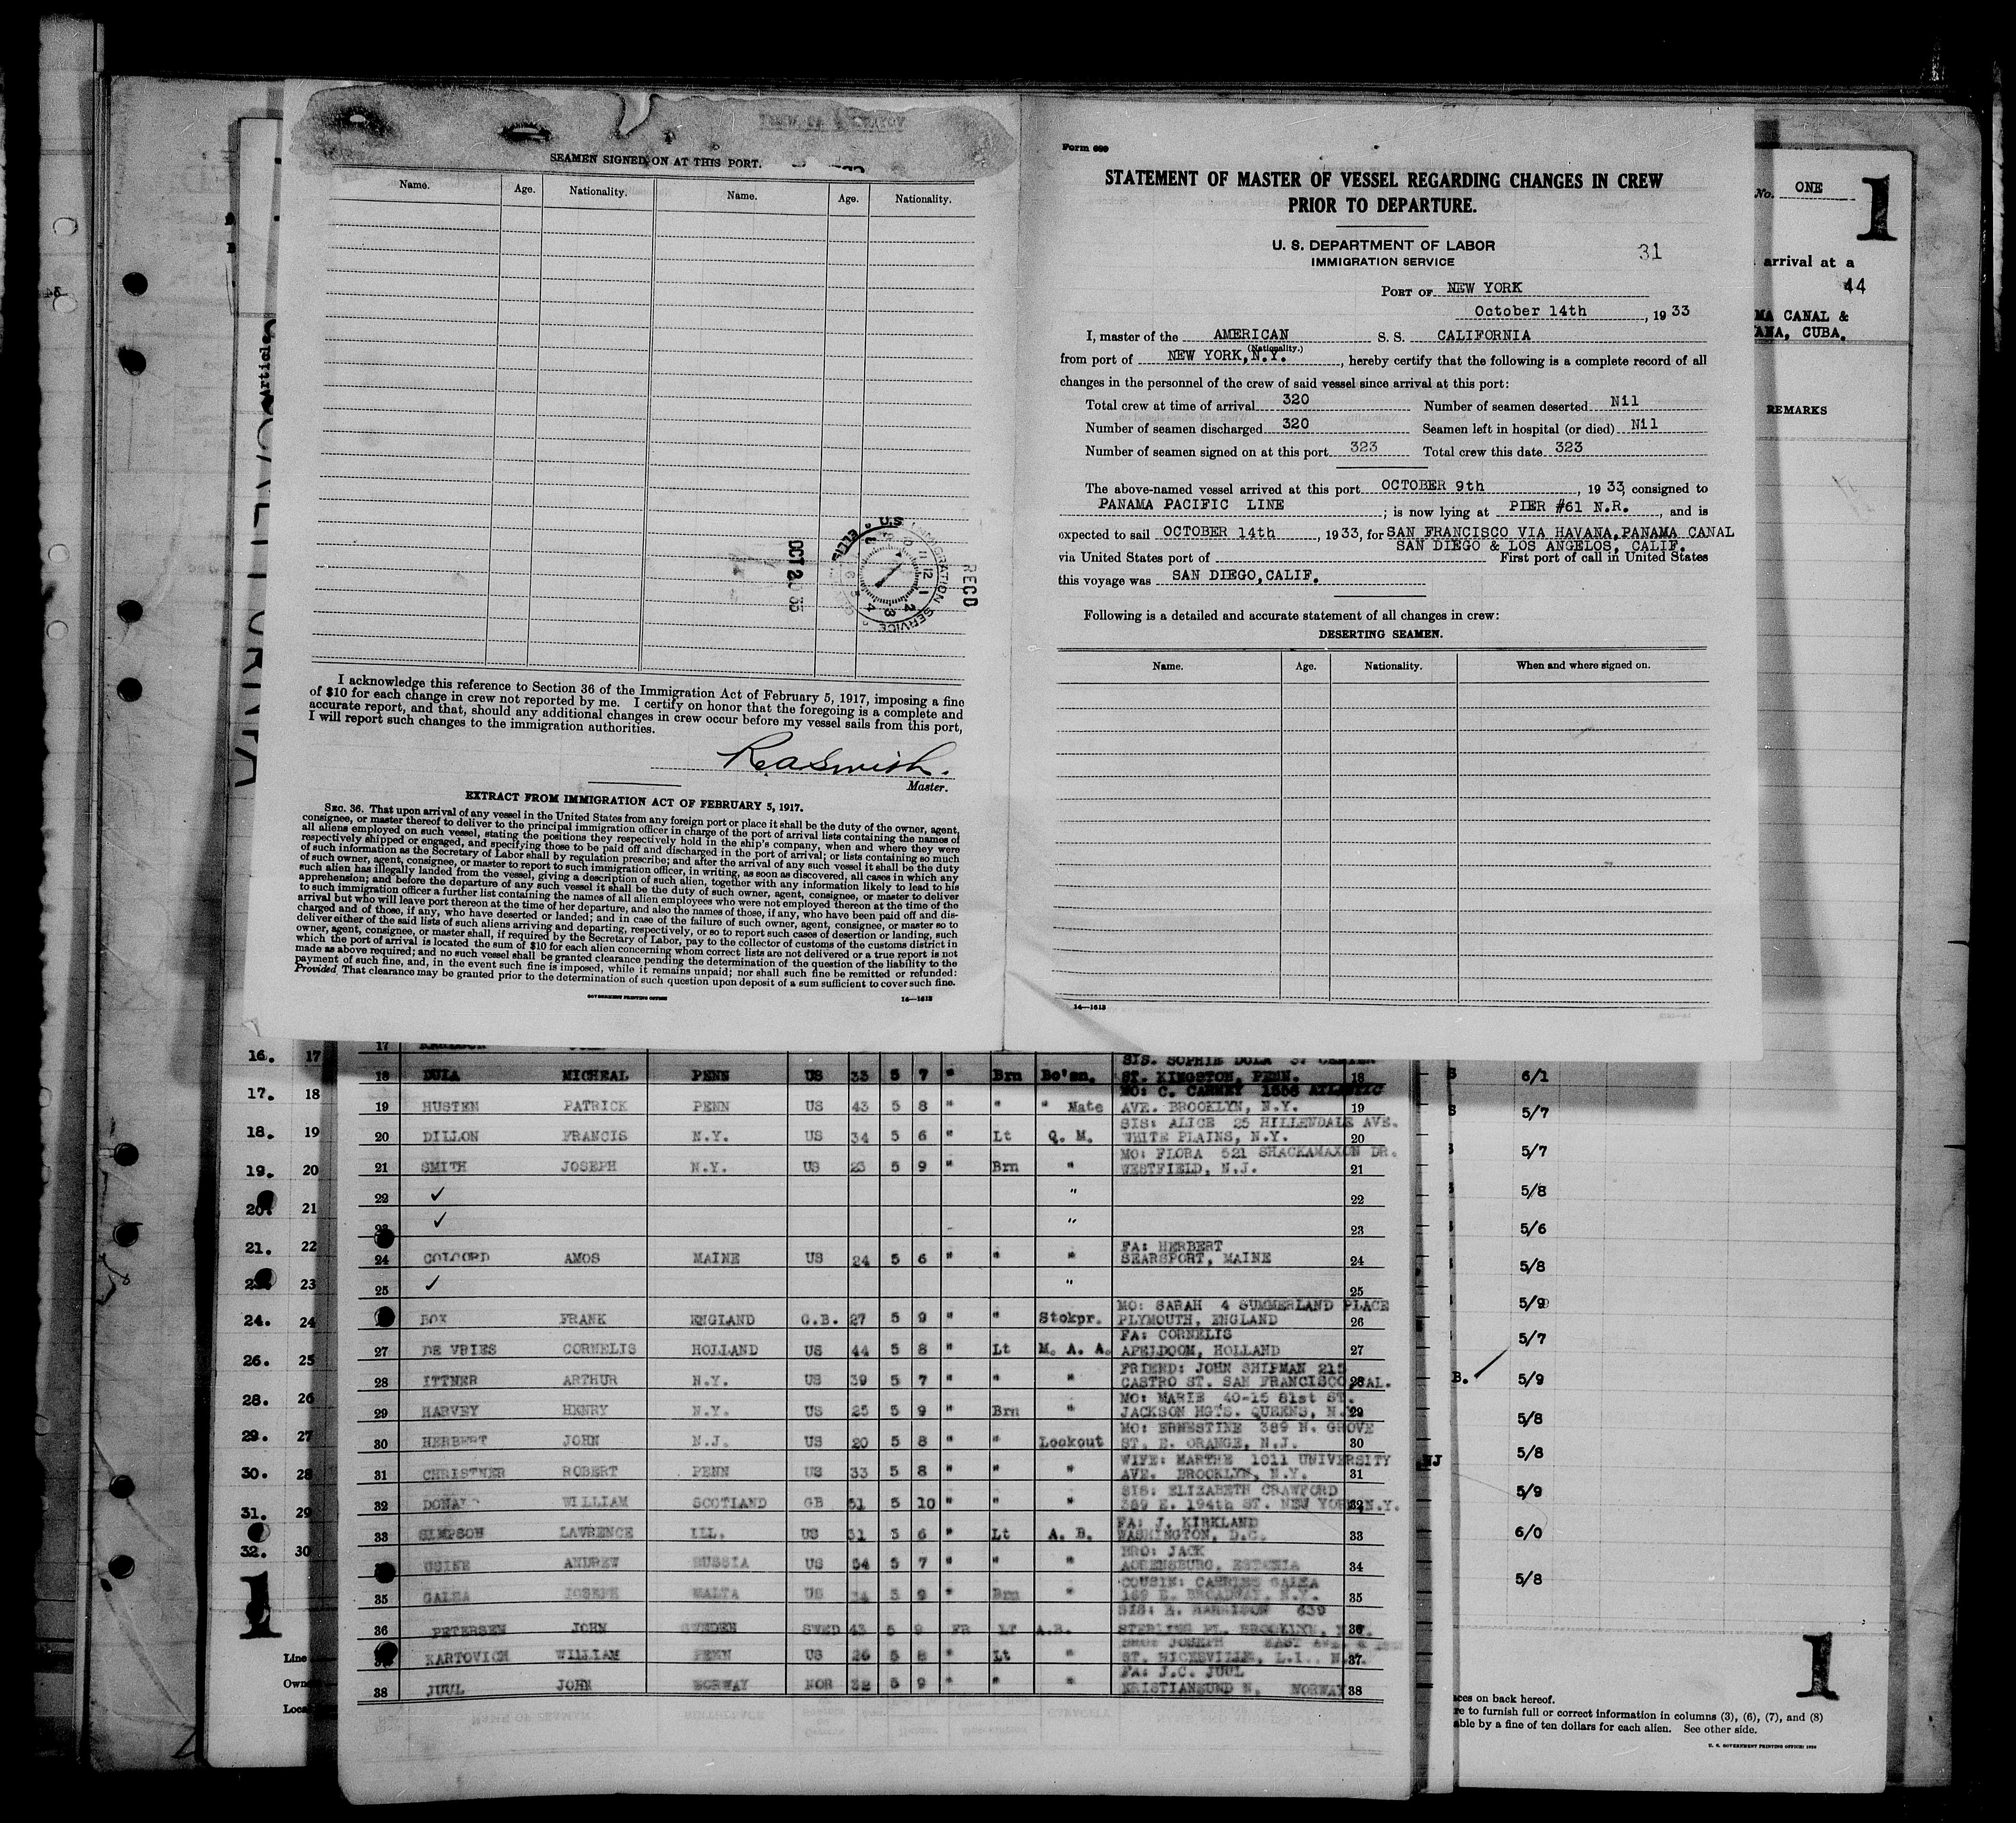 SEAMEN SIGNED ON AT THIS PORT.
Name. Age. Nationality. Name. Age. Nationality.
U.S. IMMIGRATION SERVICE ELLIS
RECD
I acknowledge this reference to Section 36 of the Immigration Act of February 5, 1917, imposing a fine
of $10 for each change in crew not reported by me. I certify on honor that the foregoing is a complete and
accurate report, and that, should any additional changes in crew occur before my vessel sails from this port,
I will report such changes to the immigration authorities.
Master.
EXTRACT FROM IMMIGRATION ACT OF FEBRUARY 5, 1917.
SEC. 36. That upon arrival of any vessel in the United States from any foreign port or place it shall be the duty of the owner, agent,
consignee, or master thereof to deliver to the principal immigration officer in charge of the port of arrival lists containing the names of
all aliens employed on such vessel, stating the positions they respectively hold in the ship's company, when and where they were
respectively shipped or engaged, and specifying those to be paid off and discharged in the port of arrival; or lists containing so much
of such information as the Secretary of Labor shall by regulation prescribe; and after the arrival of any such vessel it shall be the duty
of such owner, agent, consignee, or master to report to such immigration officer, in writing, as soon as discovered, all cases in which any
such alien has illegally landed from the vessel, giving a description of such alien, together with any information likely to lead to his
apprehension; and before the departure of any such vessel it shall be the duty of such owner, agent, consignee, or master to deliver
to such immigration officer a further list containing the names of all alien employees who were not employed thereon at the time of the
arrival but who will leave port thereon at the time of her departure, and also the names of those, if any, who have been paid off and dis-
charged and of those, if any, who have deserted or landed; and in case of the failure of such owner, agent, consignee, or master so to
deliver either of the said lists of such aliens arriving and departing, respectively, or so to report such cases of desertion or landing, such
owner, agent, consignee, or master shall, if required by the Secretary of Labor, pay to the collector of customs of the customs district in
which the port of arrival is located the sum of $10 for each alien concerning whom correct lists are not delivered or a true report is not
made as above required; and no such vessel shall be granted clearance pending the determination of the question of the liability to the
payment of such fine, and, in the event such fine is imposed, while it remains unpaid; nor shall such fine be remitted or refunded:
Provided That clearance may be granted prior to the determination of such question upon deposit of a sum sufficient to cover such fine.
GOVERNMENT PRINTING OFFICE 14—1613
Form 689
STATEMENT OF MASTER OF VESSEL REGARDING CHANGES IN CREW
PRIOR TO DEPARTURE.
U. S. DEPARTMENT OF LABOR
IMMIGRATION SERVICE
31
PORT OF NEW YORK
October 14th, 1933
I, master of the AMERICAN S. S. CALIFORNIA
(Nationality.)
from port of NEW YORK, N.Y., hereby certify that the following is a complete record of all
changes in the personnel of the crew of said vessel since arrival at this port:
Total crew at time of arrival 320 Number of seamen deserted Nil
Number of seamen discharged 320 Seamen left in hospital (or died) Nil
Number of seamen signed on at this port 323 Total crew this date 323
The above-named vessel arrived at this port OCTOBER 9th, 1933, consigned to
PANAMA PACIFIC LINE; is now lying at PIER #61 N.R., and is
expected to sail OCTOBER 14th, 1933, for SAN FRANCISCO VIA HAVANA, PANAMA CANAL
SAN DIEGO & LOS ANGELOS, CALIF.
via United States port of First port of call in United States
this voyage was SAN DIEGO, CALIF.
Following is a detailed and accurate statement of all changes in crew:
DESERTING SEAMEN.
Name. Age. Nationality. When and where signed on.
14—1613
No. ONE
1
arrival at a
44
MA CANAL &
ANA, CUBA.
REMARKS
Article
16. 17
17. 18
18. 19
19. 20
20. 21
21. 22
23
24. 24
26. 25
28. 26
29. 27
30. 28
31. 29
32. 30
1
Line
17
SIS. SOPHIE DULA
18 DULA MICHEAL PENN US 33 5 7 " Brn Bo'sn. ST. KINGSTON, PENN. 18
MO: C. CARNEY 1556 ATLANTIC
19 HUSTEN PATRICK PENN US 43 5 8 " " " Mate AVE. BROOKLYN, N.Y. 19
SIS: ALICE 25 HILLENDALE AVE.
20 DILLON FRANCIS N.Y. US 34 5 6 " Lt Q. M. WHITE PLAINS, N.Y. 20
MO: FLORA 521 SHACKAMAXON DR.
21 SMITH JOSEPH N.Y. US 23 5 9 " Brn " WESTFIELD, N.J. 21
22 ✓ " 22
23 ✓ " 23
FA: HERBERT
24 COLCORD AMOS MAINE US 24 5 6 " " " SEARSPORT, MAINE 24
25 ✓ " 25
MO: SARAH 4 SUMMERLAND PLACE
BOX FRANK ENGLAND G.B. 27 5 9 " " Stokpr. PLYMOUTH, ENGLAND 26
FA: CORNELIS
27 DE VRIES CORNELIS HOLLAND US 44 5 8 " Lt M. A. A. APELDOOM, HOLLAND 27
FRIEND: JOHN SHIPMAN 215
28 ITTNER ARTHUR N.Y. US 39 5 7 " " " CASTRO ST. SAN FRANCISCO, CAL. 28
MO: MARIE 40-15 81st ST.
29 HARVEY HENRY N.Y. US 25 5 9 " Brn " JACKSON HGTS. QUEENS, N.Y. 29
MO: ERNESTINE 389 N. GROVE
30 HERBERT JOHN N.J. US 20 5 8 " " Lookout ST. E. ORANGE, N.J. 30
WIFE: MARTHE 1011 UNIVERSITY
31 CHRISTNER ROBERT PENN US 33 5 8 " " " AVE. BROOKLYN, N.Y. 31
SIS: ELIZABETH CRAWFORD
32 DONALD WILLIAM SCOTLAND GB 51 5 10 " " " 389 E. 194th ST. NEW YORK, N.Y. 32
FA: J. KIRKLAND
33 SIMPSON LAWRENCE ILL. US 31 5 6 " Lt A. B. WASHINGTON, D.C. 33
BRO: JACK
USINE ANDREW RUSSIA US 54 5 7 " " " ESTONIA 34
COUSIN: CHARLES GALEA
35 GALEA JOSEPH MALTA US 34 5 9 " Brn " 169 E. BROADWAY, N.Y. 35
SIS: 639
36 PETERSEN JOHN SWEDEN SWED 43 5 9 FR LT A.B. STERLING PL. BROOKLYN, 36
JOSEPH EAST AVE.
KARTOVICH WILLIAM PENN US 26 5 8 " Lt " ST. HICKSVILLE, L.I. 37
FA: J.C. JUUL
38 JUUL JOHN NORWAY NOR 32 5 9 " " " KRISTIANSUND N. NORWAY 38
6/1
5/7
5/7
5/8
5/6
5/8
5/9
5/7
B. 5/9
5/8
NJ 5/8
5/9
6/0
5/8
1
on back hereof.
to furnish full or correct information in columns (3), (6), (7), and (8)
able by a fine of ten dollars for each alien. See other side.
U. S. GOVERNMENT PRINTING OFFICE